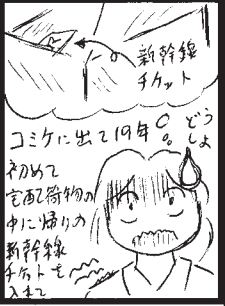 新幹線
チケット
コミケに出て19年
どう
しよ
初めて
宅配荷物の
中に帰りの
新幹線
チケットを
入れて